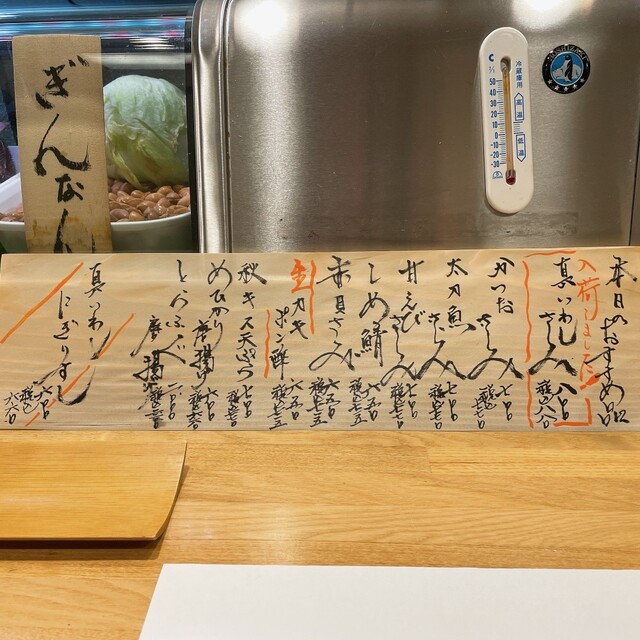 ぎんなん
℃
冷蔵庫用
高温
低温
50
40
30
20
10
0
-10
-20
-30
本日のおすすめ品
入荷しました
真いわしさしみ 八〇〇
税込八八〇
かつおさしみ 七〇〇
税込七七〇
太刀魚さしみ 七〇〇
税込七七〇
甘えびさしみ 七〇〇
税込七七〇
しめ鯖 六五〇
税込七一五
赤貝さしみ 六五〇
税込七一五
生カキポン酢 六五〇
税込七一五
秋キス天ぷら 七〇〇
税込七七〇
めひかり唐揚げ 六〇〇
税込六六〇
とらふぐ唐揚
真いわしにぎりずし 六〇〇
税込六六〇